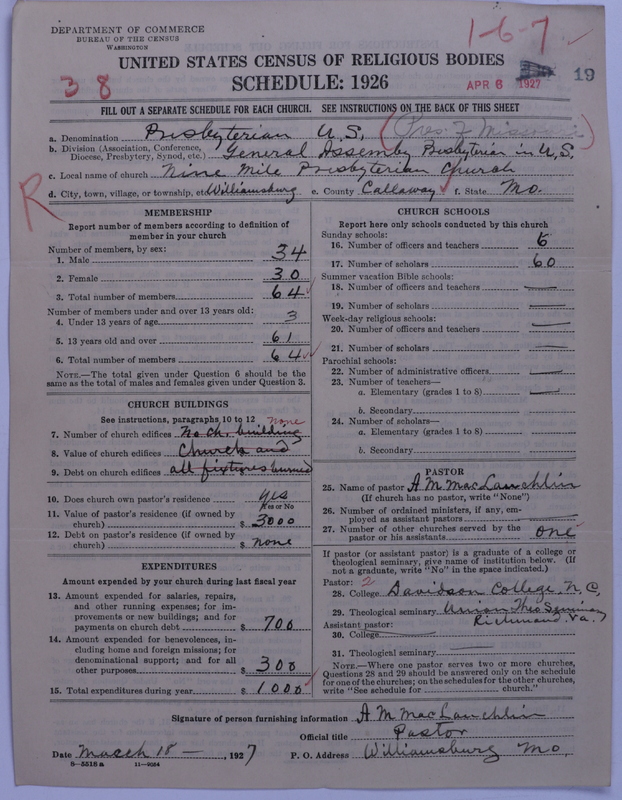 DEPARTMENT OF COMMERCE
BUREAU OF THE CENSUS
WASHINGTON
1-6-7
UNITED STATES CENSUS OF RELIGIOUS BODIES
SCHEDULE: 1926
3 8
APR 6 1927
19
FILL OUT A SEPARATE SCHEDULE FOR EACH CHURCH. SEE INSTRUCTIONS ON THE BACK OF THIS SHEET
a. Denomination Presbyterian U.S. (Pres. Missouri)
b. Division (Association, Conference, Diocese, Presbytery, Synod, etc.) General Assemby Presbyterian in U.S,
c. Local name of church Nine Mile Presbyterian Church
d. City, town, village, or township, etc. Williamsburg e. County Callaway f. State Mo.
R
MEMBERSHIP
Report number of members according to definition of member in your church
Number of members, by sex:
1. Male 34
2. Female 30
3. Total number of members 64
Number of members under and over 13 years old:
4. Under 13 years of age 3
5. 13 years old and over 61
6. Total number of members 64
NOTE.—The total given under Question 6 should be the same as the total of males and females given under Question 3.
CHURCH BUILDINGS
See instructions, paragraphs 10 to 12 none
7. Number of church edifices No ch. building
8. Value of church edifices Church and
9. Debt on church edifices all fixtures burned
10. Does church own pastor's residence yes
Yes or No
11. Value of pastor's residence (if owned by church) $ 3000
12. Debt on pastor's residence (if owned by church) $ none
EXPENDITURES
Amount expended by your church during last fiscal year
13. Amount expended for salaries, repairs, and other running expenses; for improvements or new buildings; and for payments on church debt $ 700
14. Amount expended for benevolences, including home and foreign missions; for denominational support; and for all other purposes $ 300
15. Total expenditures during year $ 1000
CHURCH SCHOOLS
Report here only schools conducted by this church
Sunday schools:
16. Number of officers and teachers 6
17. Number of scholars 60
Summer vacation Bible schools:
18. Number of officers and teachers
19. Number of scholars
Week-day religious schools:
20. Number of officers and teachers
21. Number of scholars
Parochial schools:
22. Number of administrative officers
23. Number of teachers—
a. Elementary (grades 1 to 8)
b. Secondary
24. Number of scholars—
a. Elementary (grades 1 to 8)
b. Secondary
PASTOR
25. Name of pastor A.M. MacLauchlin
(If church has no pastor, write "None")
26. Number of ordained ministers, if any, employed as assistant pastors
27. Number of other churches served by the pastor or his assistants one
If pastor (or assistant pastor) is a graduate of a college or theological seminary, give name of institution below. (If not a graduate, write "No" in the space indicated.)
Pastor: 2
28. College Davidson College N.C,
29. Theological seminary Union Theo Seminary
Richmond Va.
Assistant pastor:
30. College
31. Theological seminary
NOTE.—Where one pastor serves two or more churches, Questions 28 and 29 should be answered only on the schedule for one of the churches; on the schedules for the other churches, write "See schedule for church."
Signature of person furnishing information A M MacLauchlin
Official title Pastor
Date March 18 — , 1927 P. O. Address Williamsburg Mo,
8—5518 a 11—9034